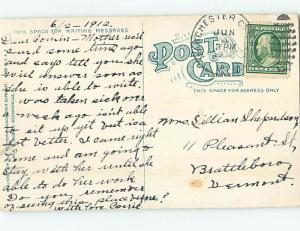 6/2-1912.
THIS SPACE FOR WRITING MESSAGES
Dear Cousin - Mother rec'd
card some time ago
and says tell you she
will answer soon as
she is able to write,
was taken sick over
week ago isn't able
to sit up yet but is a
bit better. I came right
home and am going to
stay with her until she
able to do her work.
Do you remember
of seeing this place before?
With love, Carrie
POST CARD
THIS SPACE FOR ADDRESS ONLY
CHESTER
JUN
3 PM
Mrs Lillian Shepardson
11 Pleasant St,
Brattleboro
Vermont.